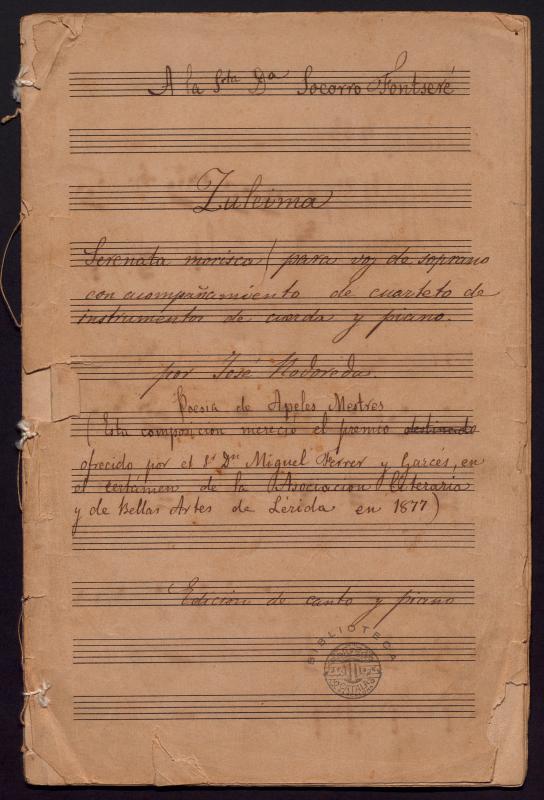 A la Srta Da Socorro Fontseré
Zuleima
Serenata morisca / para voz de soprano
con acompañamiento de cuarteto de
instrumentos de cuerda y piano.
por José Rodoreda.
Poesia de Apeles Mestres
(Esta composición mereció el premio destinado
ofrecido por el Sr Dn Miguel Ferrer y Garcés, en
el certámen de la Asociacion literaria
y de Bellas Artes de Lérida en 1877)
Edición de canto y piano
BIBLIOTECA